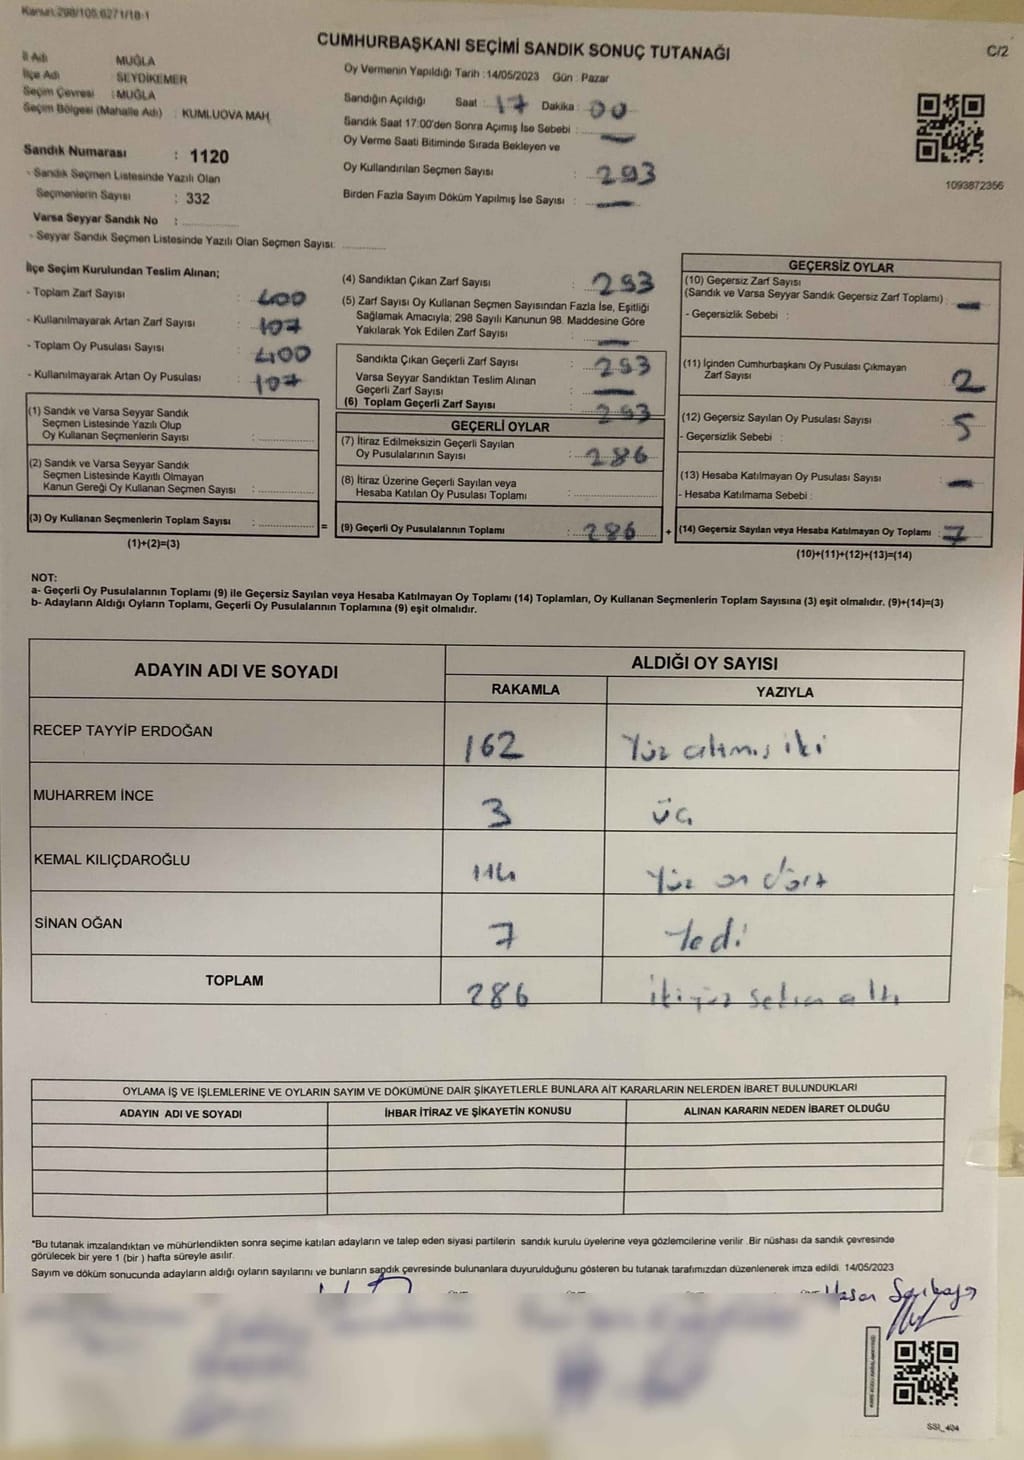 Kanun:298/105.6271/18-1
CUMHURBAŞKANI SEÇİMİ SANDIK SONUÇ TUTANAĞI
C/2
İl Adı MUĞLA
İlçe Adı SEYDİKEMER
Seçim Çevresi : MUĞLA
Seçim Bölgesi (Mahalle Adı) : KUMLUOVA MAH.
Sandık Numarası : 1120
- Sandık Seçmen Listesinde Yazılı Olan
Seçmenlerin Sayısı : 332
Varsa Seyyar Sandık No :
- Seyyar Sandık Seçmen Listesinde Yazılı Olan Seçmen Sayısı:
Oy Vermenin Yapıldığı Tarih :14/05/2023 Gün : Pazar
Sandığın Açıldığı Saat : 17 Dakika : 00
Sandık Saat 17:00'den Sonra Açımış İse Sebebi : —
Oy Verme Saati Bitiminde Sırada Bekleyen ve
Oy Kullandırılan Seçmen Sayısı : 293
Birden Fazla Sayım Döküm Yapılmış İse Sayısı : —
1093872356
İlçe Seçim Kurulundan Teslim Alınan;
- Toplam Zarf Sayısı : 400
- Kullanılmayarak Artan Zarf Sayısı : 107
- Toplam Oy Pusulası Sayısı : 400
- Kullanılmayarak Artan Oy Pusulası : 107
(1) Sandık ve Varsa Seyyar Sandık
Seçmen Listesinde Yazılı Olup
Oy Kullanan Seçmenlerin Sayısı :
(2) Sandık ve Varsa Seyyar Sandık
Seçmen Listesinde Kayıtlı Olmayan
Kanun Gereği Oy Kullanan Seçmen Sayısı :
(3) Oy Kullanan Seçmenlerin Toplam Sayısı : =
(1)+(2)=(3)
(4) Sandıktan Çıkan Zarf Sayısı : 293
(5) Zarf Sayısı Oy Kullanan Seçmen Sayısından Fazla İse, Eşitliği
Sağlamak Amacıyla; 298 Sayılı Kanunun 98. Maddesine Göre
Yakılarak Yok Edilen Zarf Sayısı : —
Sandıkta Çıkan Geçerli Zarf Sayısı : 293
Varsa Seyyar Sandıktan Teslim Alınan
Geçerli Zarf Sayısı : —
(6) Toplam Geçerli Zarf Sayısı : 293
GEÇERLİ OYLAR
(7) İtiraz Edilmeksizin Geçerli Sayılan
Oy Pusulalarının Sayısı : 286
(8) İtiraz Üzerine Geçerli Sayılan veya
Hesaba Katılan Oy Pusulası Toplamı :
(9) Geçerli Oy Pusulalarının Toplamı : 286 +
GEÇERSİZ OYLAR
(10) Geçersiz Zarf Sayısı
(Sandık ve Varsa Seyyar Sandık Geçersiz Zarf Toplamı) : —
- Geçersizlik Sebebi :
(11) İçinden Cumhurbaşkanı Oy Pusulası Çıkmayan
Zarf Sayısı 2
(12) Geçersiz Sayılan Oy Pusulası Sayısı 5
- Geçersizlik Sebebi :
(13) Hesaba Katılmayan Oy Pusulası Sayısı —
- Hesaba Katılmama Sebebi :
(14) Geçersiz Sayılan veya Hesaba Katılmayan Oy Toplamı : 7
(10)+(11)+(12)+(13)=(14)
NOT:
a- Geçerli Oy Pusulalarının Toplamı (9) ile Geçersiz Sayılan veya Hesaba Katılmayan Oy Toplamı (14) Toplamları, Oy Kullanan Seçmenlerin Toplam Sayısına (3) eşit olmalıdır. (9)+(14)=(3)
b- Adayların Aldığı Oyların Toplamı, Geçerli Oy Pusulalarının Toplamına (9) eşit olmalıdır.
ADAYIN ADI VE SOYADI ALDIĞI OY SAYISI
RAKAMLA YAZIYLA
RECEP TAYYİP ERDOĞAN 162 Yüz altmış iki
MUHARREM İNCE 3 üç
KEMAL KILIÇDAROĞLU 114 Yüz on dört
SİNAN OĞAN 7 Yedi
TOPLAM 286 ikiyüz seksen altı
OYLAMA İŞ VE İŞLEMLERİNE VE OYLARIN SAYIM VE DÖKÜMÜNE DAİR ŞİKAYETLERLE BUNLARA AİT KARARLARIN NELERDEN İBARET BULUNDUKLARI
ADAYIN ADI VE SOYADI İHBAR İTİRAZ VE ŞİKAYETİN KONUSU ALINAN KARARIN NEDEN İBARET OLDUĞU
*Bu tutanak imzalandıktan ve mühürlendikten sonra seçime katılan adayların ve talep eden siyasi partilerin sandık kurulu üyelerine veya gözlemcilerine verilir. Bir nüshası da sandık çevresinde
görülecek bir yere 1 (bir ) hafta süreyle asılır.
Sayım ve döküm sonucunda adayların aldığı oyların sayılarını ve bunların sandık çevresinde bulunanlara duyurulduğunu gösteren bu tutanak tarafımızdan düzenlenerek imza edildi. 14/05/2023
Hasan
SSI_404